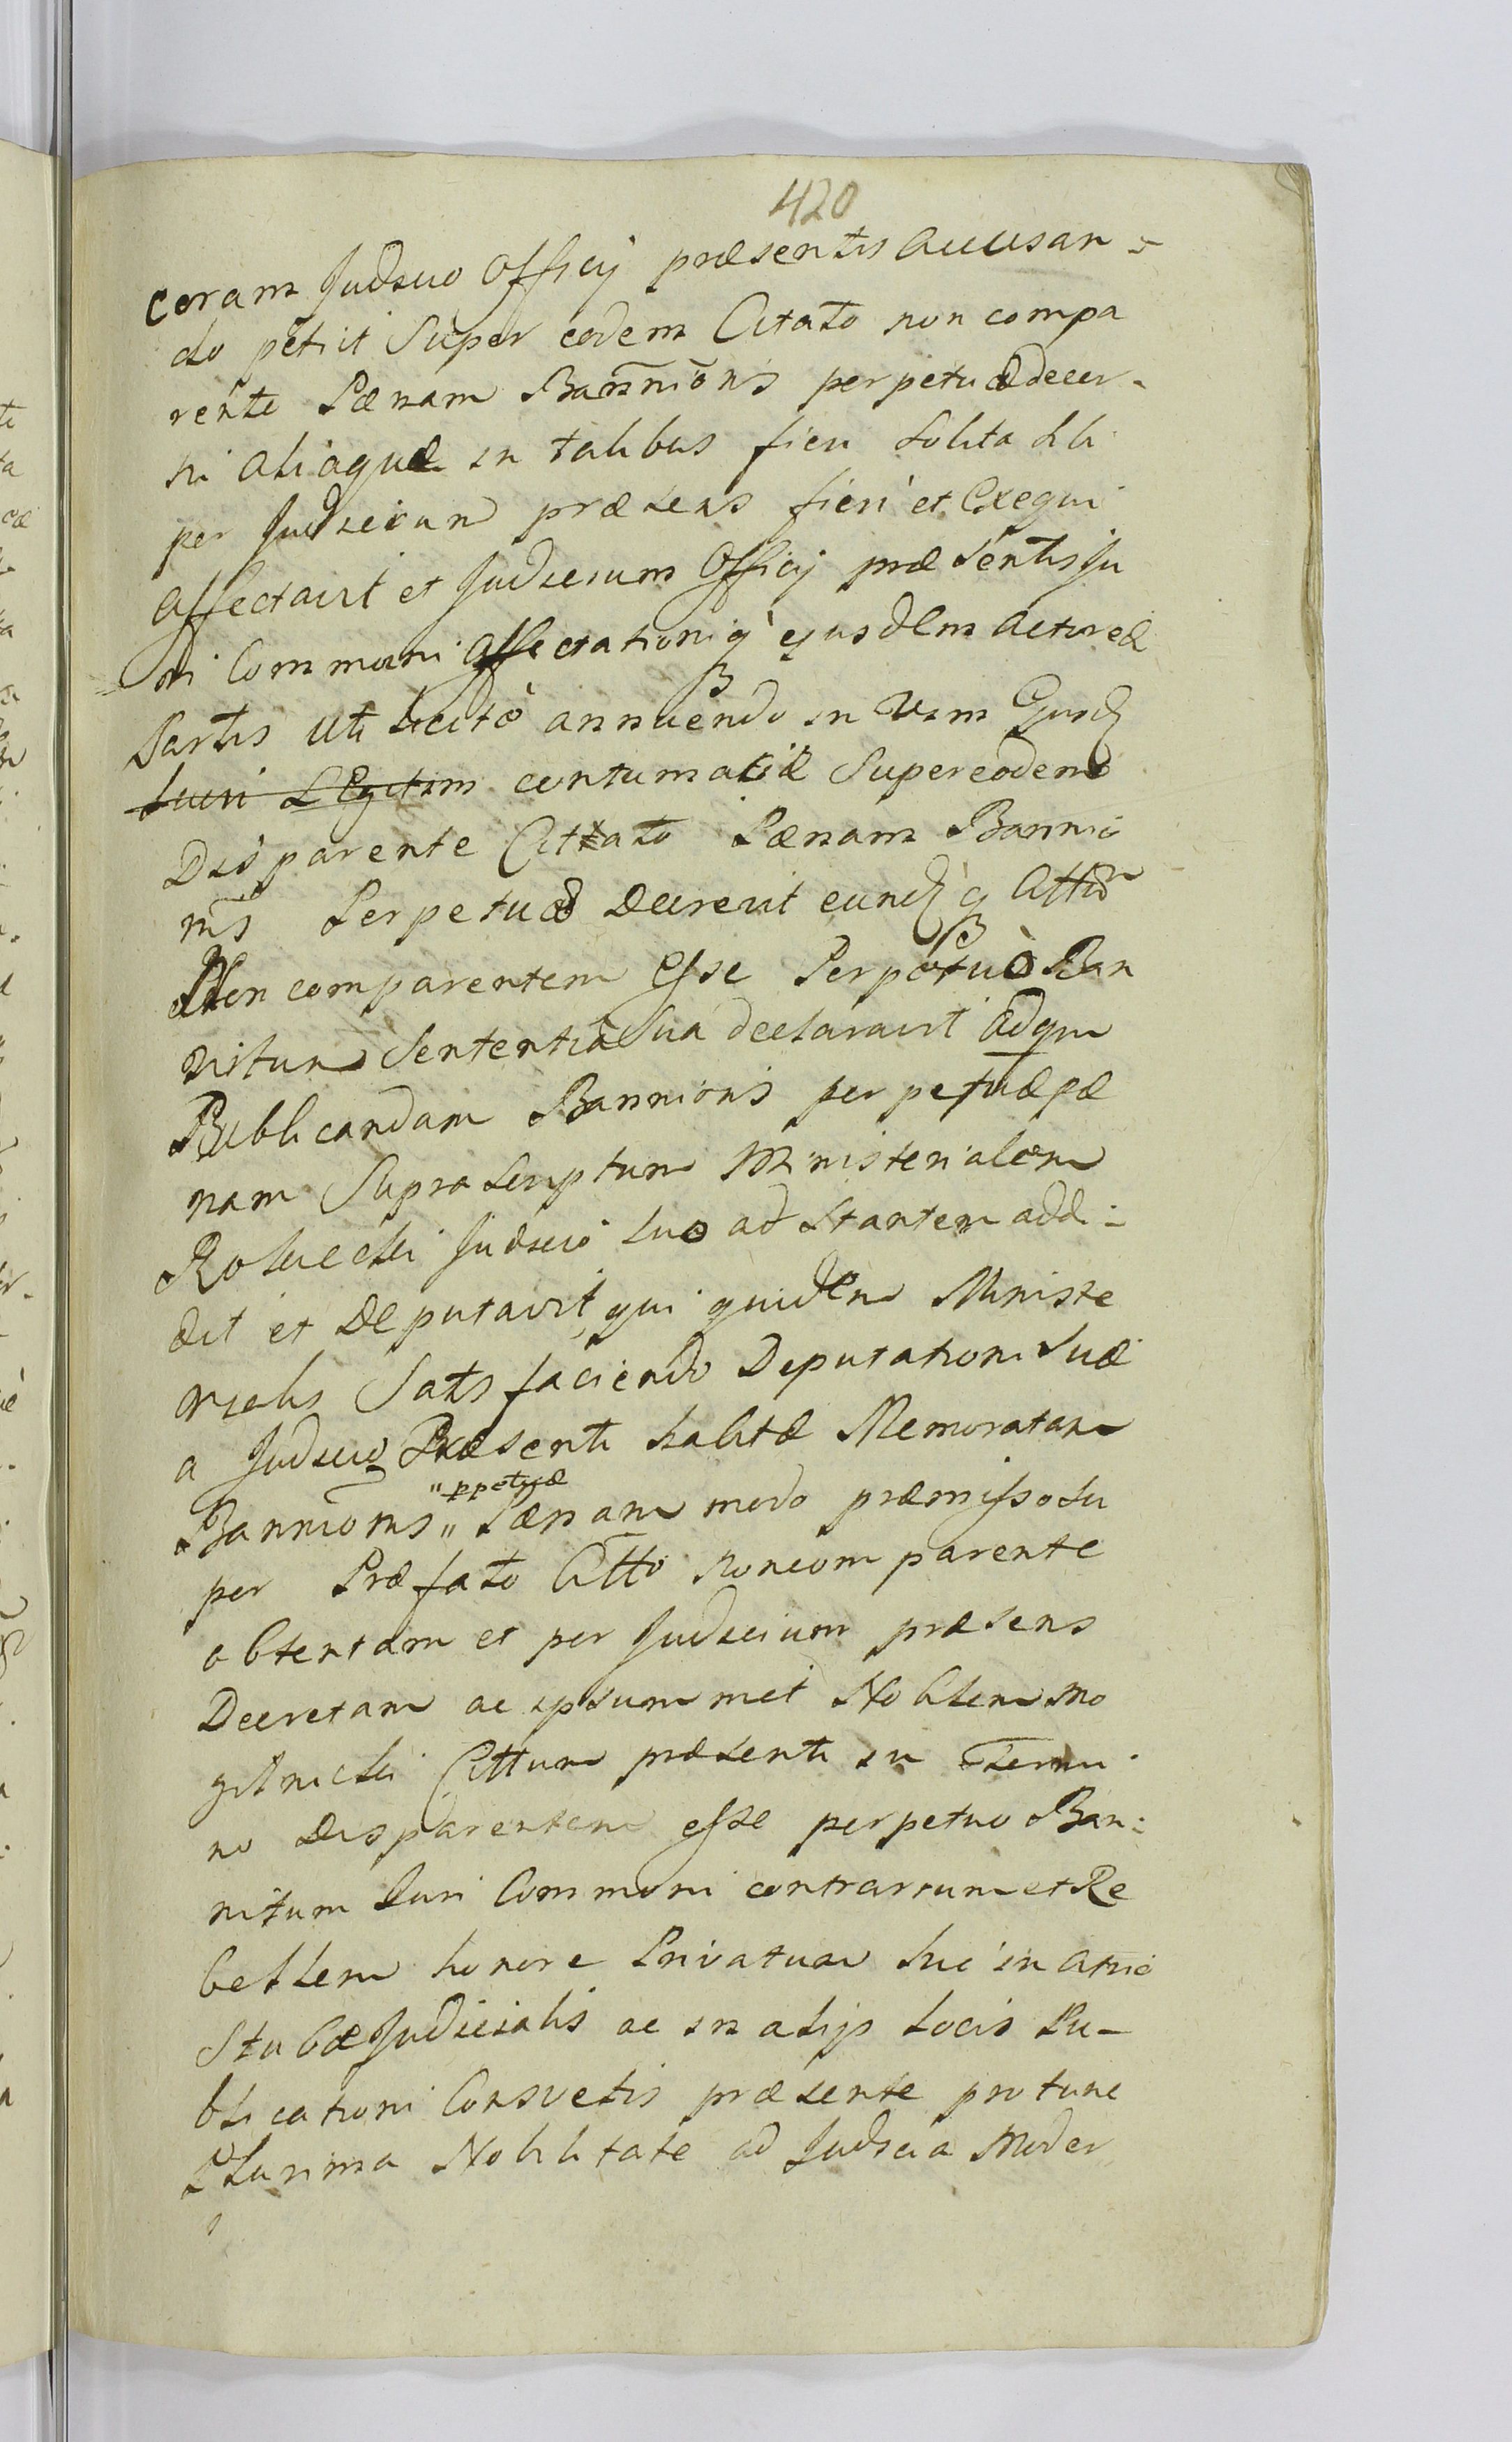 420
coram Judicio Officij præsentis accusan-
do petiit Super eodem Citato non compa
rente Pænam Bannionis perpetuæ decer-
ni aliaquæ in talibus fieri Solita sibi
per Judicium præsens fieri et Exequi
affectavit et Judicium Officij præsentis Ju
ri Communi affectationiq ejusdem actoreæ
Partis uti licitò annuendo in vim Ejusd
Luci Legitim contumaciæ Super eodem
Disparente Citato Pænam Bannio
nis Perpetuæ Decrevit eundq Citt
Non comparentem Esse Perpetuò Ban
nitum Sententiâ Sua declaravit Adqm
Publicandam Bannionis perpetuæ pæ
nam Supra Scriptum Ministerialem
Judicio suo ad Stantem addi-
dit et Deputavit, qui quidem Ministe
rialis Satisfaciendo Deputationi Suæ
a Judicio Præsenti habitæ Memoratam
Bannionis " Pænam modo præmisso Su
" ppetuæ
per Præfato Citto noncomparente
obtentam et per Judicium præsens
Decretam ac ipsummet Nobilem Mo
gilnicki Cittum præsenti in Termi
no Disparentem esse perpetuo Ban-
nitum Iuri Communi contrarium et Re
bellem honore Privatum hic in atrio
Stubæ Judicialis ac in alijs Locis Pu-
blicationi Consvetis præsente protunc
Plurima Nobilitate ad Judicia Moder